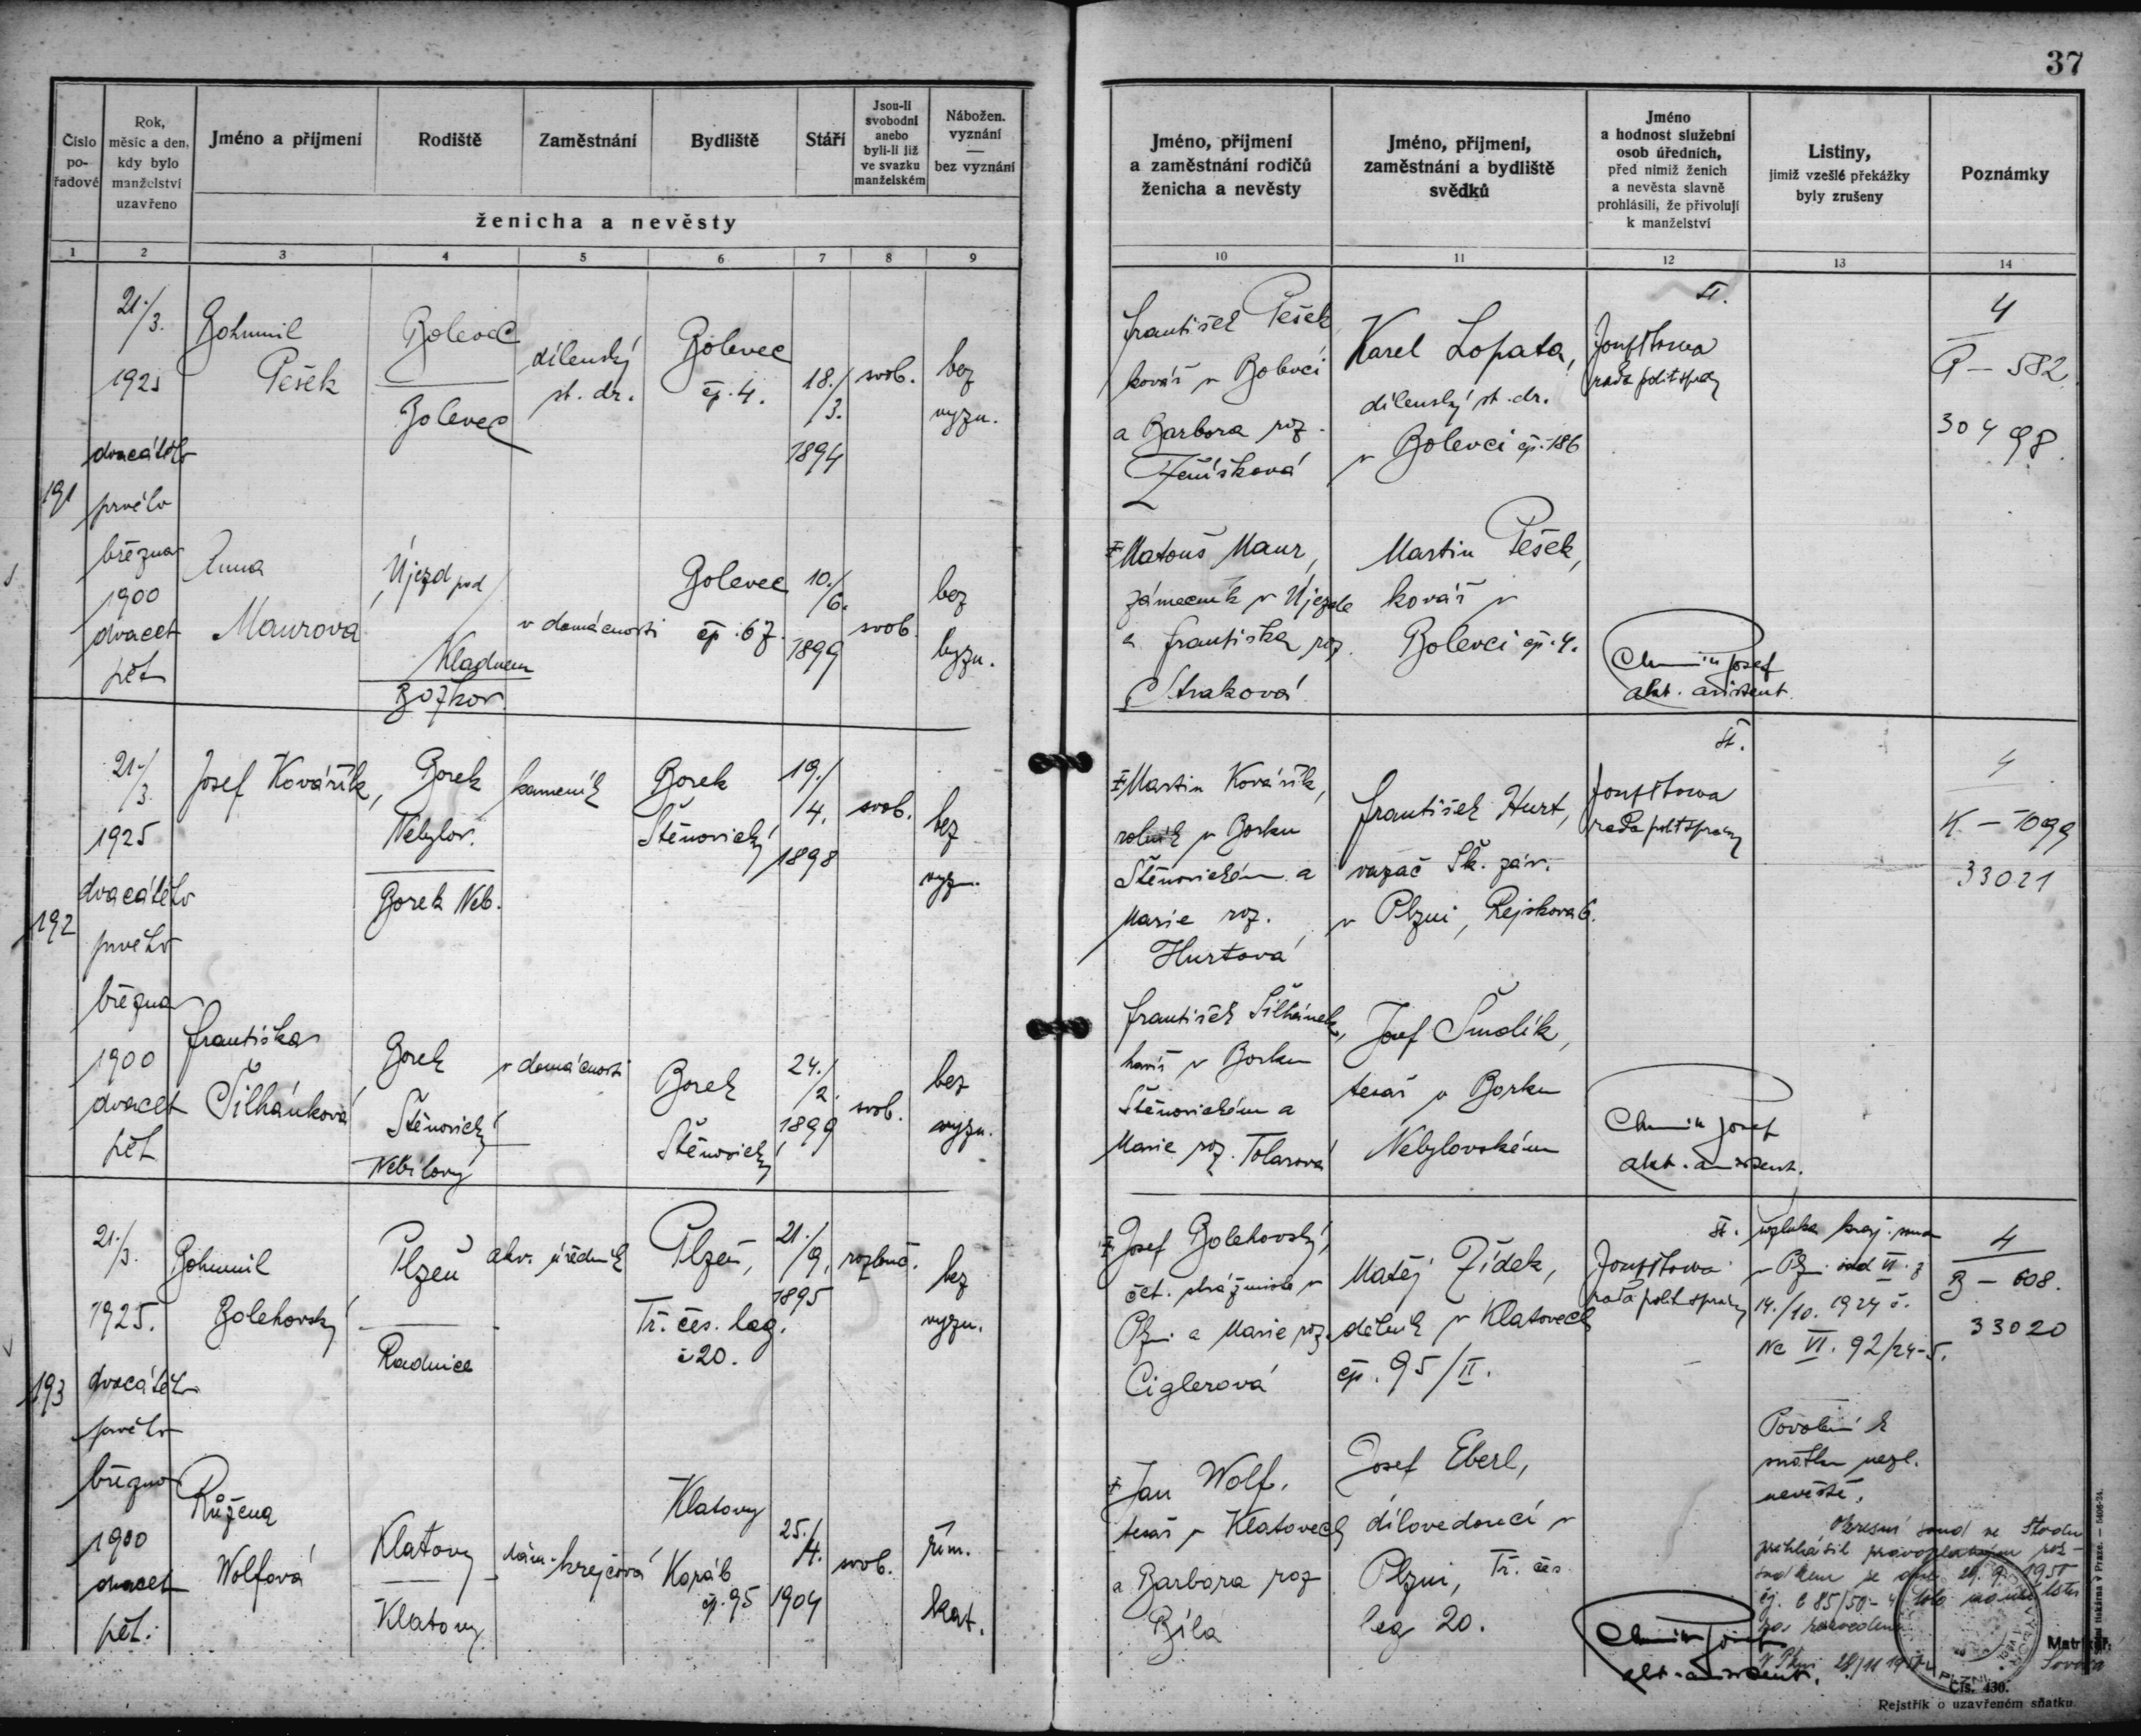 37
Číslo
po-
řadové
Rok,
měsíc a den,
kdy bylo
manželství
uzavřeno
Jméno a příjmení
Rodiště
Zaměstnání
Bydliště
Stáří
Jsou-li
svobodni
anebo
byli-li již
ve svazku
manželském
Nábožen.
vyznání
—
bez vyznání
ženicha a nevěsty
Jméno, příjmení
a zaměstnání rodičů
ženicha a nevěsty
Jméno, příjmení,
zaměstnání a bydliště
svědků
Jméno
a hodnost služební
osob úředních,
před nimiž ženich
a nevěsta slavně
prohlásili, že přivolují
k manželství
Listiny,
jimiž vzešlé překážky
byly zrušeny
Poznámky
1 2 3 4 5 6 7 8 9 10 11 12 13 14
191
21./
3.
1925
dvacátého
prvého
března
1900
dvacet
pět
Bohumil
Pešek
Bolevec
Bolevec
dílenský
st. dr.
Bolevec
čp. 4.
18./
3.
1894
svob.
bez
vyzn.
František Pešek
kovář v Bolevci
a Barbora roz.
Karel Lopata,
dílenský st. dr.
v Bolevci čp. 186
rada polit. správy
4
P – 582
30498
Anna
Maurova
Újezd pod
Kladnem
Božkov
v domácnosti
Bolevec
čp. 67.
10./
6.
1899
svob.
bez
vyzn.
Matouš Maur,
zámečník v Újezde
a Františka roz.
Straková
Martin Pešek,
kovář v
Bolevci čp. 4.
Josef
akt. asistent.
192
21./
3.
1925
dvacátého
prvého
března
1900
dvacet
pět
Josef Kovářík,
Borek
Nebylov.
Borek Neb.
kameník
Borek
Štěnovický
19./
4.
1898
svob.
bez
vyzn.
Martin Kovářík,
rolník v Borku
Štěnovickém a
Marie roz.
Hurtová
František Hurt,
vazač Šk. záv.
v Plzni, Rejskova 6.
rada polit. správy
4
K – 1099
33021
Františka
Šilhánková
Borek
Štěnovický
Nebílovy
v domácnosti
Borek
Štěnovický
24./
2.
1899
svob.
bez
vyzn.
František Šilhánek,
v Borku
Štěnovickém a
Marie roz. Tolarová
Josef Smolík,
tesař v Borku
Nebylovském
Josef
akt. asistent.
193
21./
3.
1925.
dvacátého
prvého
března
1900
dvacet
pět.
Bohumil
Bolehovský
Plzeň
Radnice
úředník
Plzeň,
Tř. čes. leg.
č 20.
21./
9.
1895
rozluč.
bez
vyzn.
Josef Bolehovský,
čet. strážmistr v
Plzni a Marie roz.
Ciglerová
Matěj Zídek,
dělník v Klatovech
čp. 95/II.
rada polit. správy
rozluka kraj. soud
v Plzni odd VI. z
14./10. 1924 č.
Nc VI. 92/24-5.
4
B – 608.
33020
Růžena
Wolfová
Klatovy
Klatovy
krejčová
Klatovy
Koráb
čp. 95
25./
4.
1904
svob.
řím.
kat.
Jan Wolf,
tesař v Klatovech
a Barbora roz
Bíla
Josef Eberl,
dílovedoucí v
Plzni, Tř. čes
leg 20.
Josef
akt. asistent.
Povolení k
sňatku nezl.
nevěstě.
Okresní soud ve
prohlásil
V Plzni
Matrikář:
Čís. 430.
Rejstřík o uzavřeném sňatku
Státní tiskárna v Praze. — 5406-24.